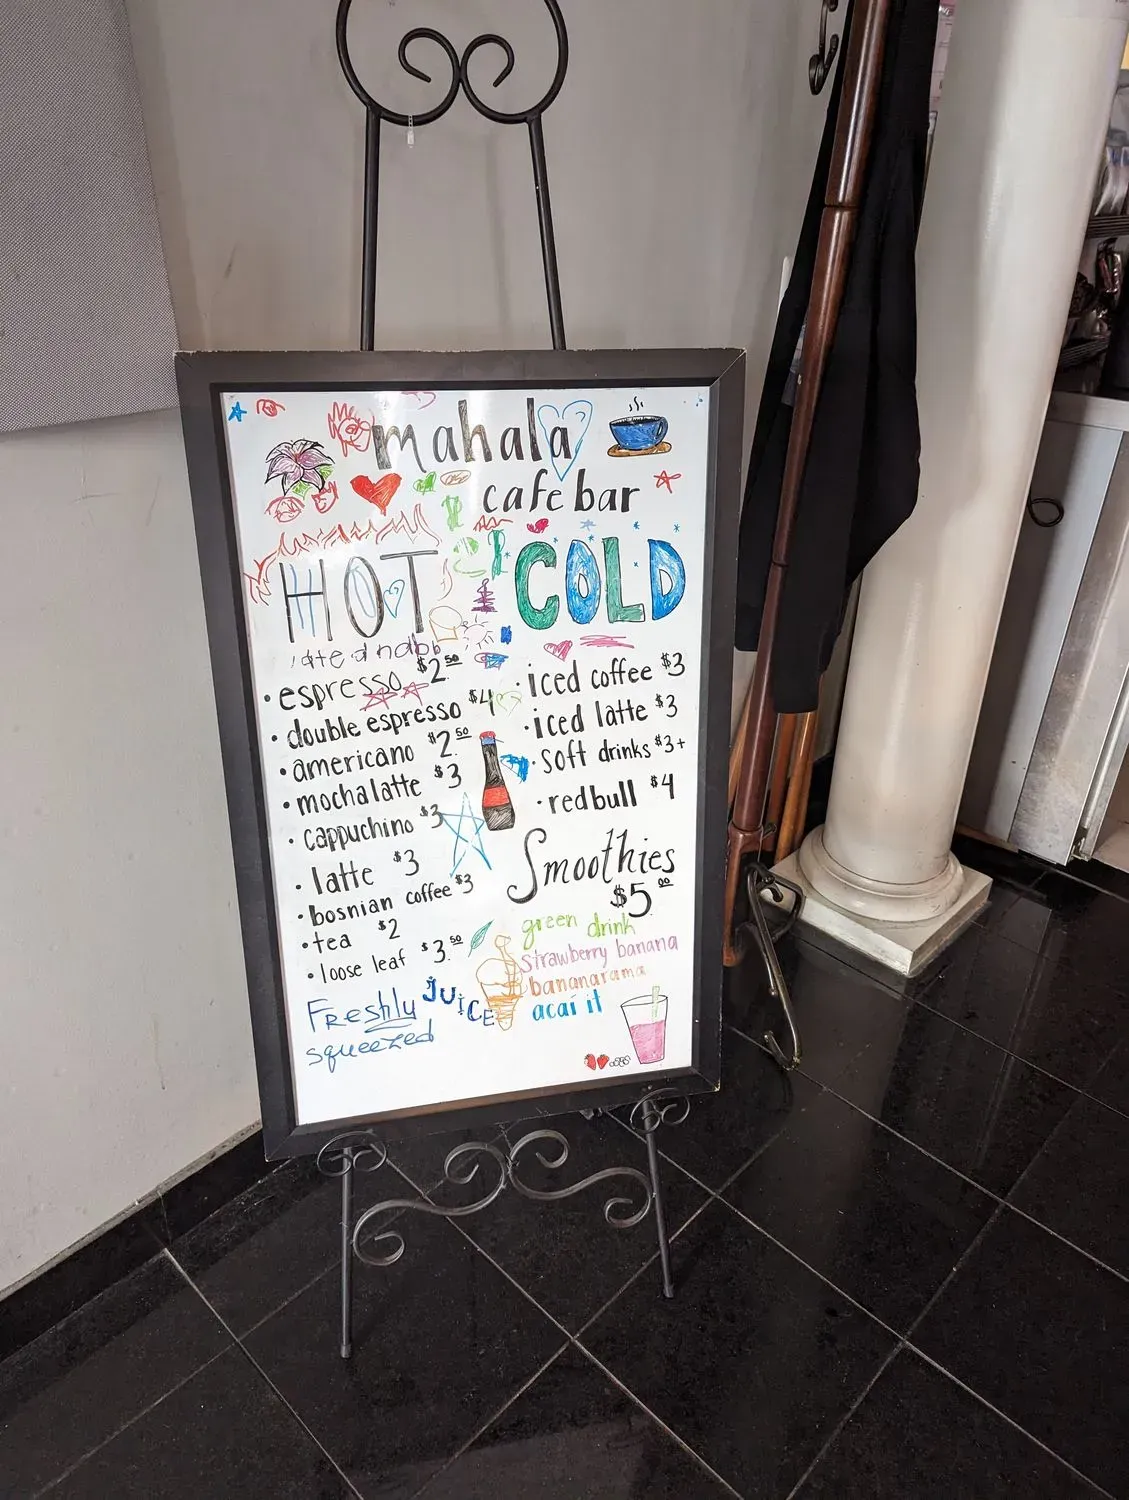 mahala
cafe bar
HOT
espresso $2.50
double espresso $4
americano $2.50
mocha latte $3
cappuchino $3
latte $3
bosnian coffee $3
tea $2
loose leaf $3.50
Freshly
squeezed
JUiCE
COLD
iced coffee $3
iced latte $3
soft drinks $3+
redbull $4
Smoothies
$5.00
green drink
strawberry banana
bananarama
acaí it